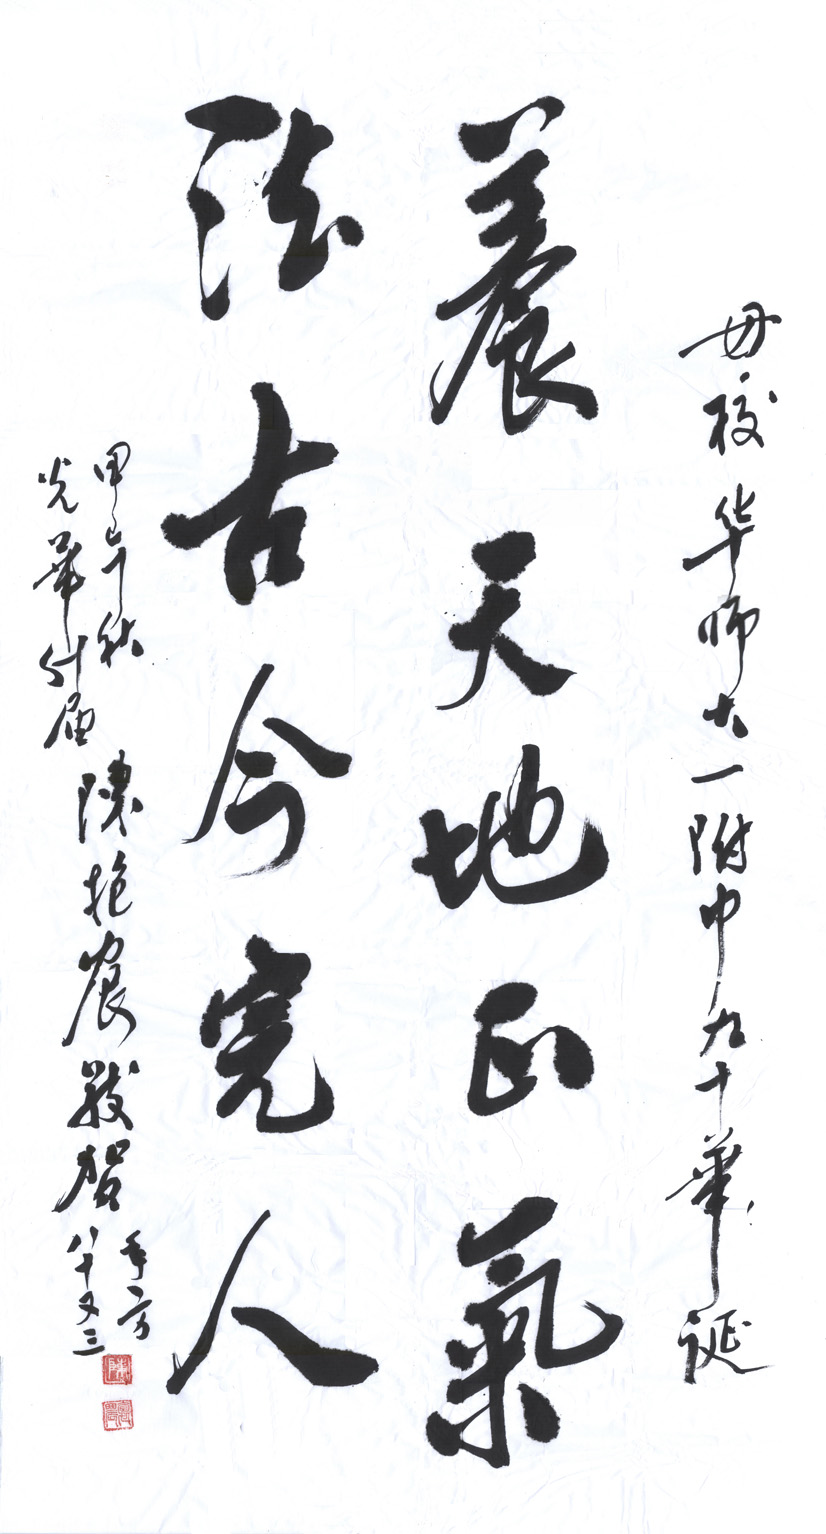 母校华师大一附中九十華诞
養天地正氣
法古今完人
甲午秋
光華廿届
陳抱農敬賀
年方
八十又三